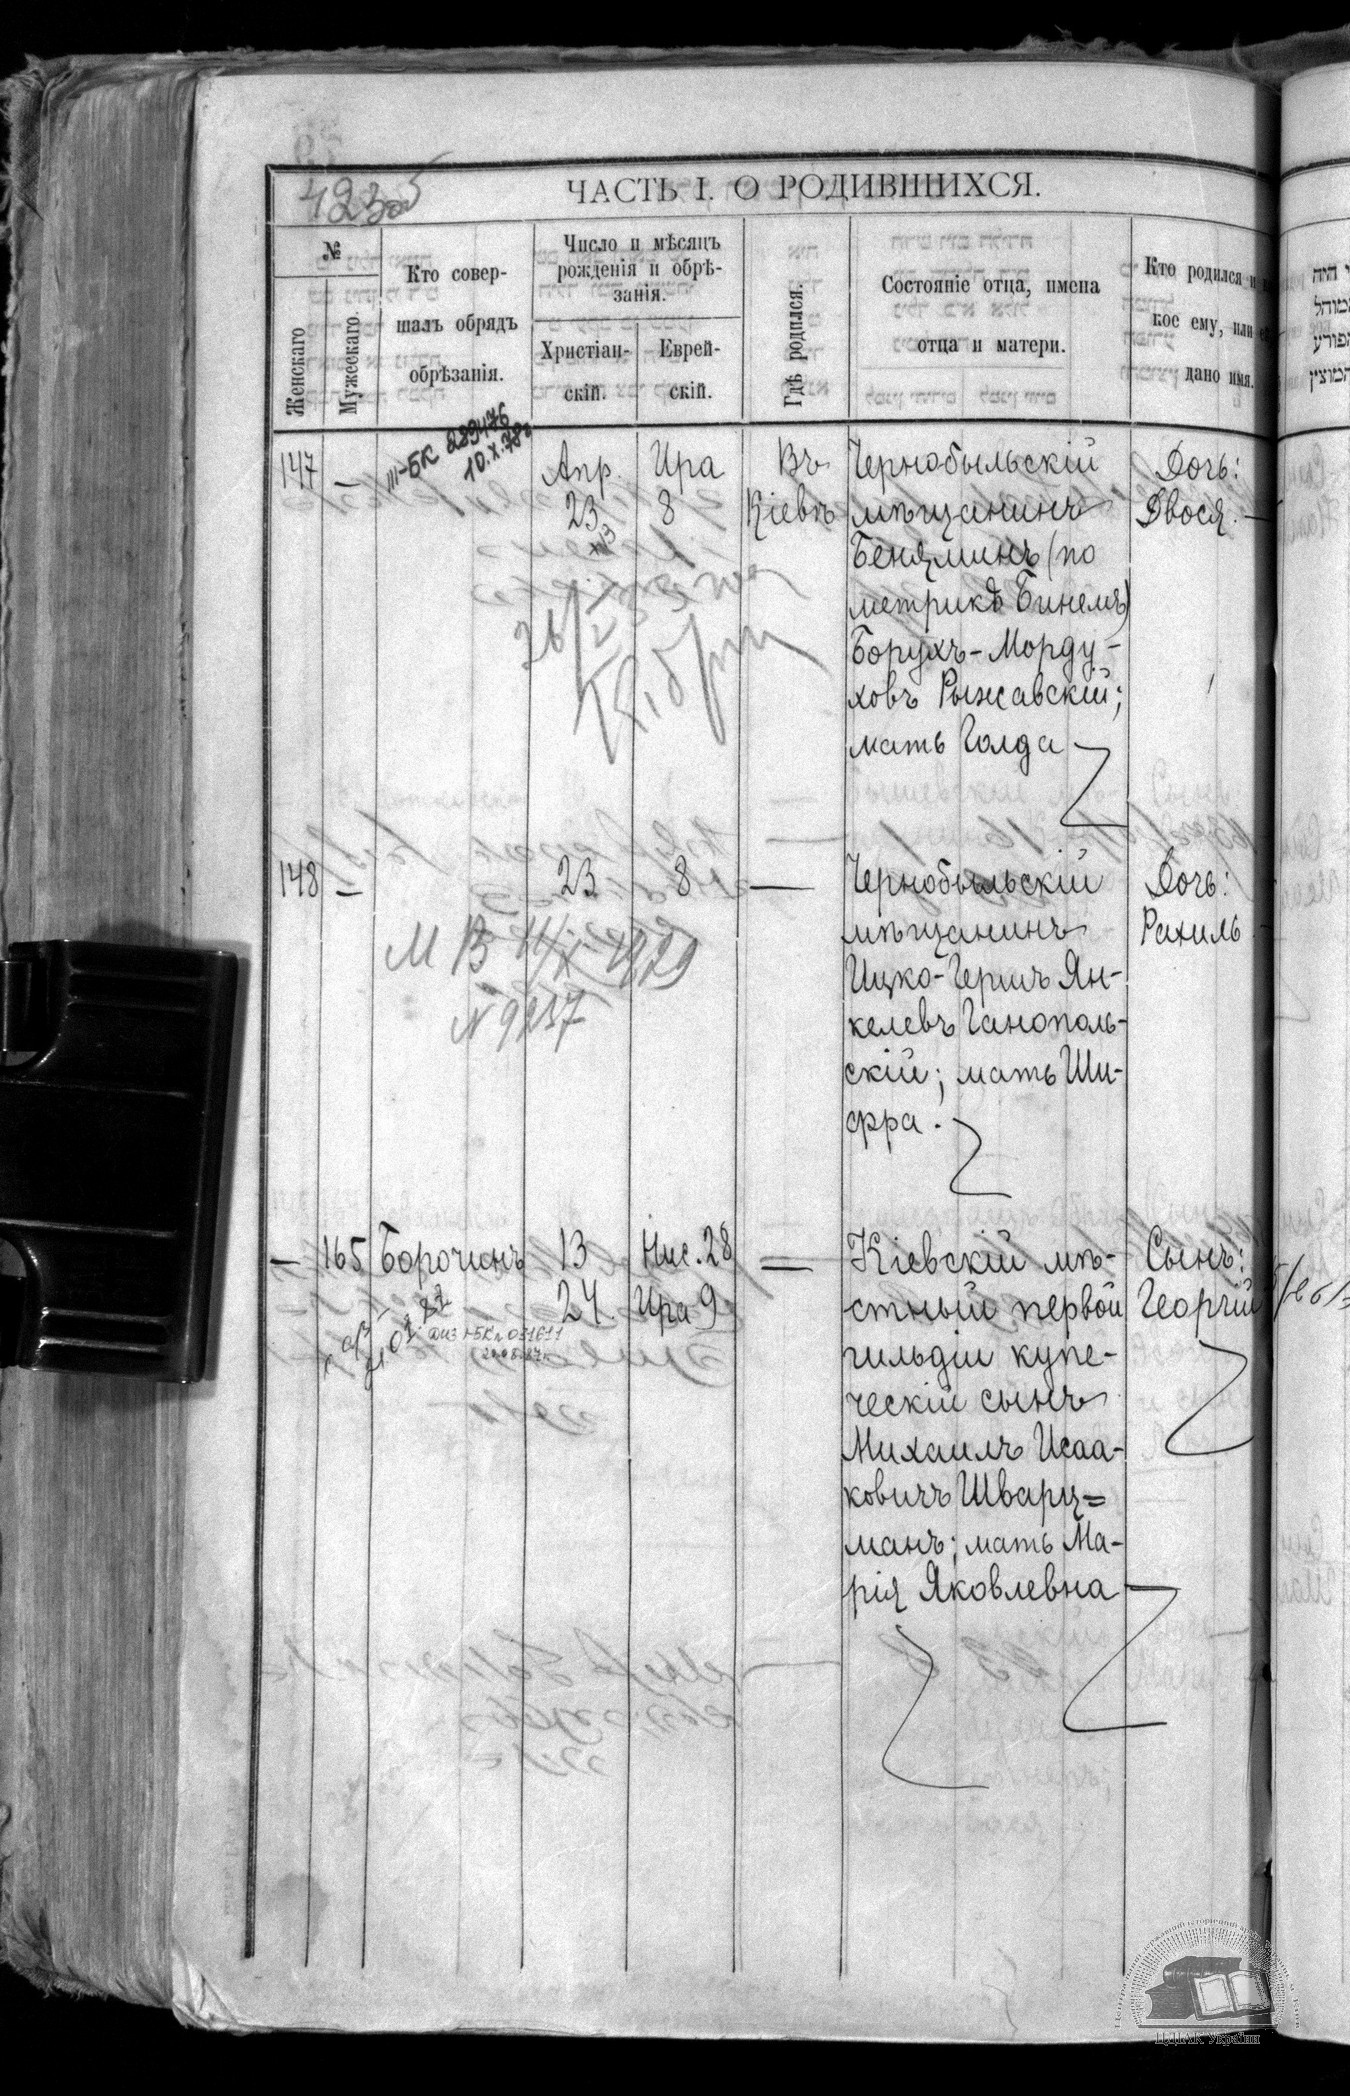 423 об
ЧАСТЬ I. О РОДИВШИХСЯ.
№
Женскаго
Мужескаго.
Кто совер-
шалъ обрядъ
обрѣзанія.
Число и мѣсяцъ
рожденія и обрѣ-
занія.
Христіан-
скій.
Еврей-
скій.
Гдѣ родился.
Состояніе отца, имена
отца и матери.
Кто родился и
кое ему, или
дано имя.
147
—
III-БК 289476
10.X.78г
Апр.
23
Ира
8
Въ
Кіевѣ
Чернобыльскій
мѣщанинъ
Беняминъ (по
метрикѣ Бинемъ)
Борухъ-Морду-
ховъ Рыжавскій;
мать Голда
Дочь:
Двося. —
148
—
23
8
—
Чернобыльскій
мѣщанинъ
Ицко-Гершъ Ян-
келевъ Ганополь-
скій; мать Ши-
фра.
Дочь:
Рахиль
№ 9237
—
165
Борочинъ
13
24
Нис. 28
Ира 9
Кіевскій мѣ-
стный первой
гильдіи купе-
ческій сынъ
Михаилъ Исаа-
ковичъ Шварц=
манъ; мать Ма-
рія Яковлевна
Сынъ:
Георгій
ЦДІАК України